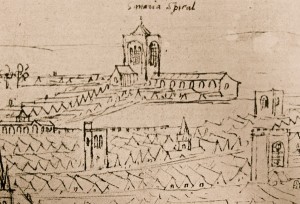 s maria Spital